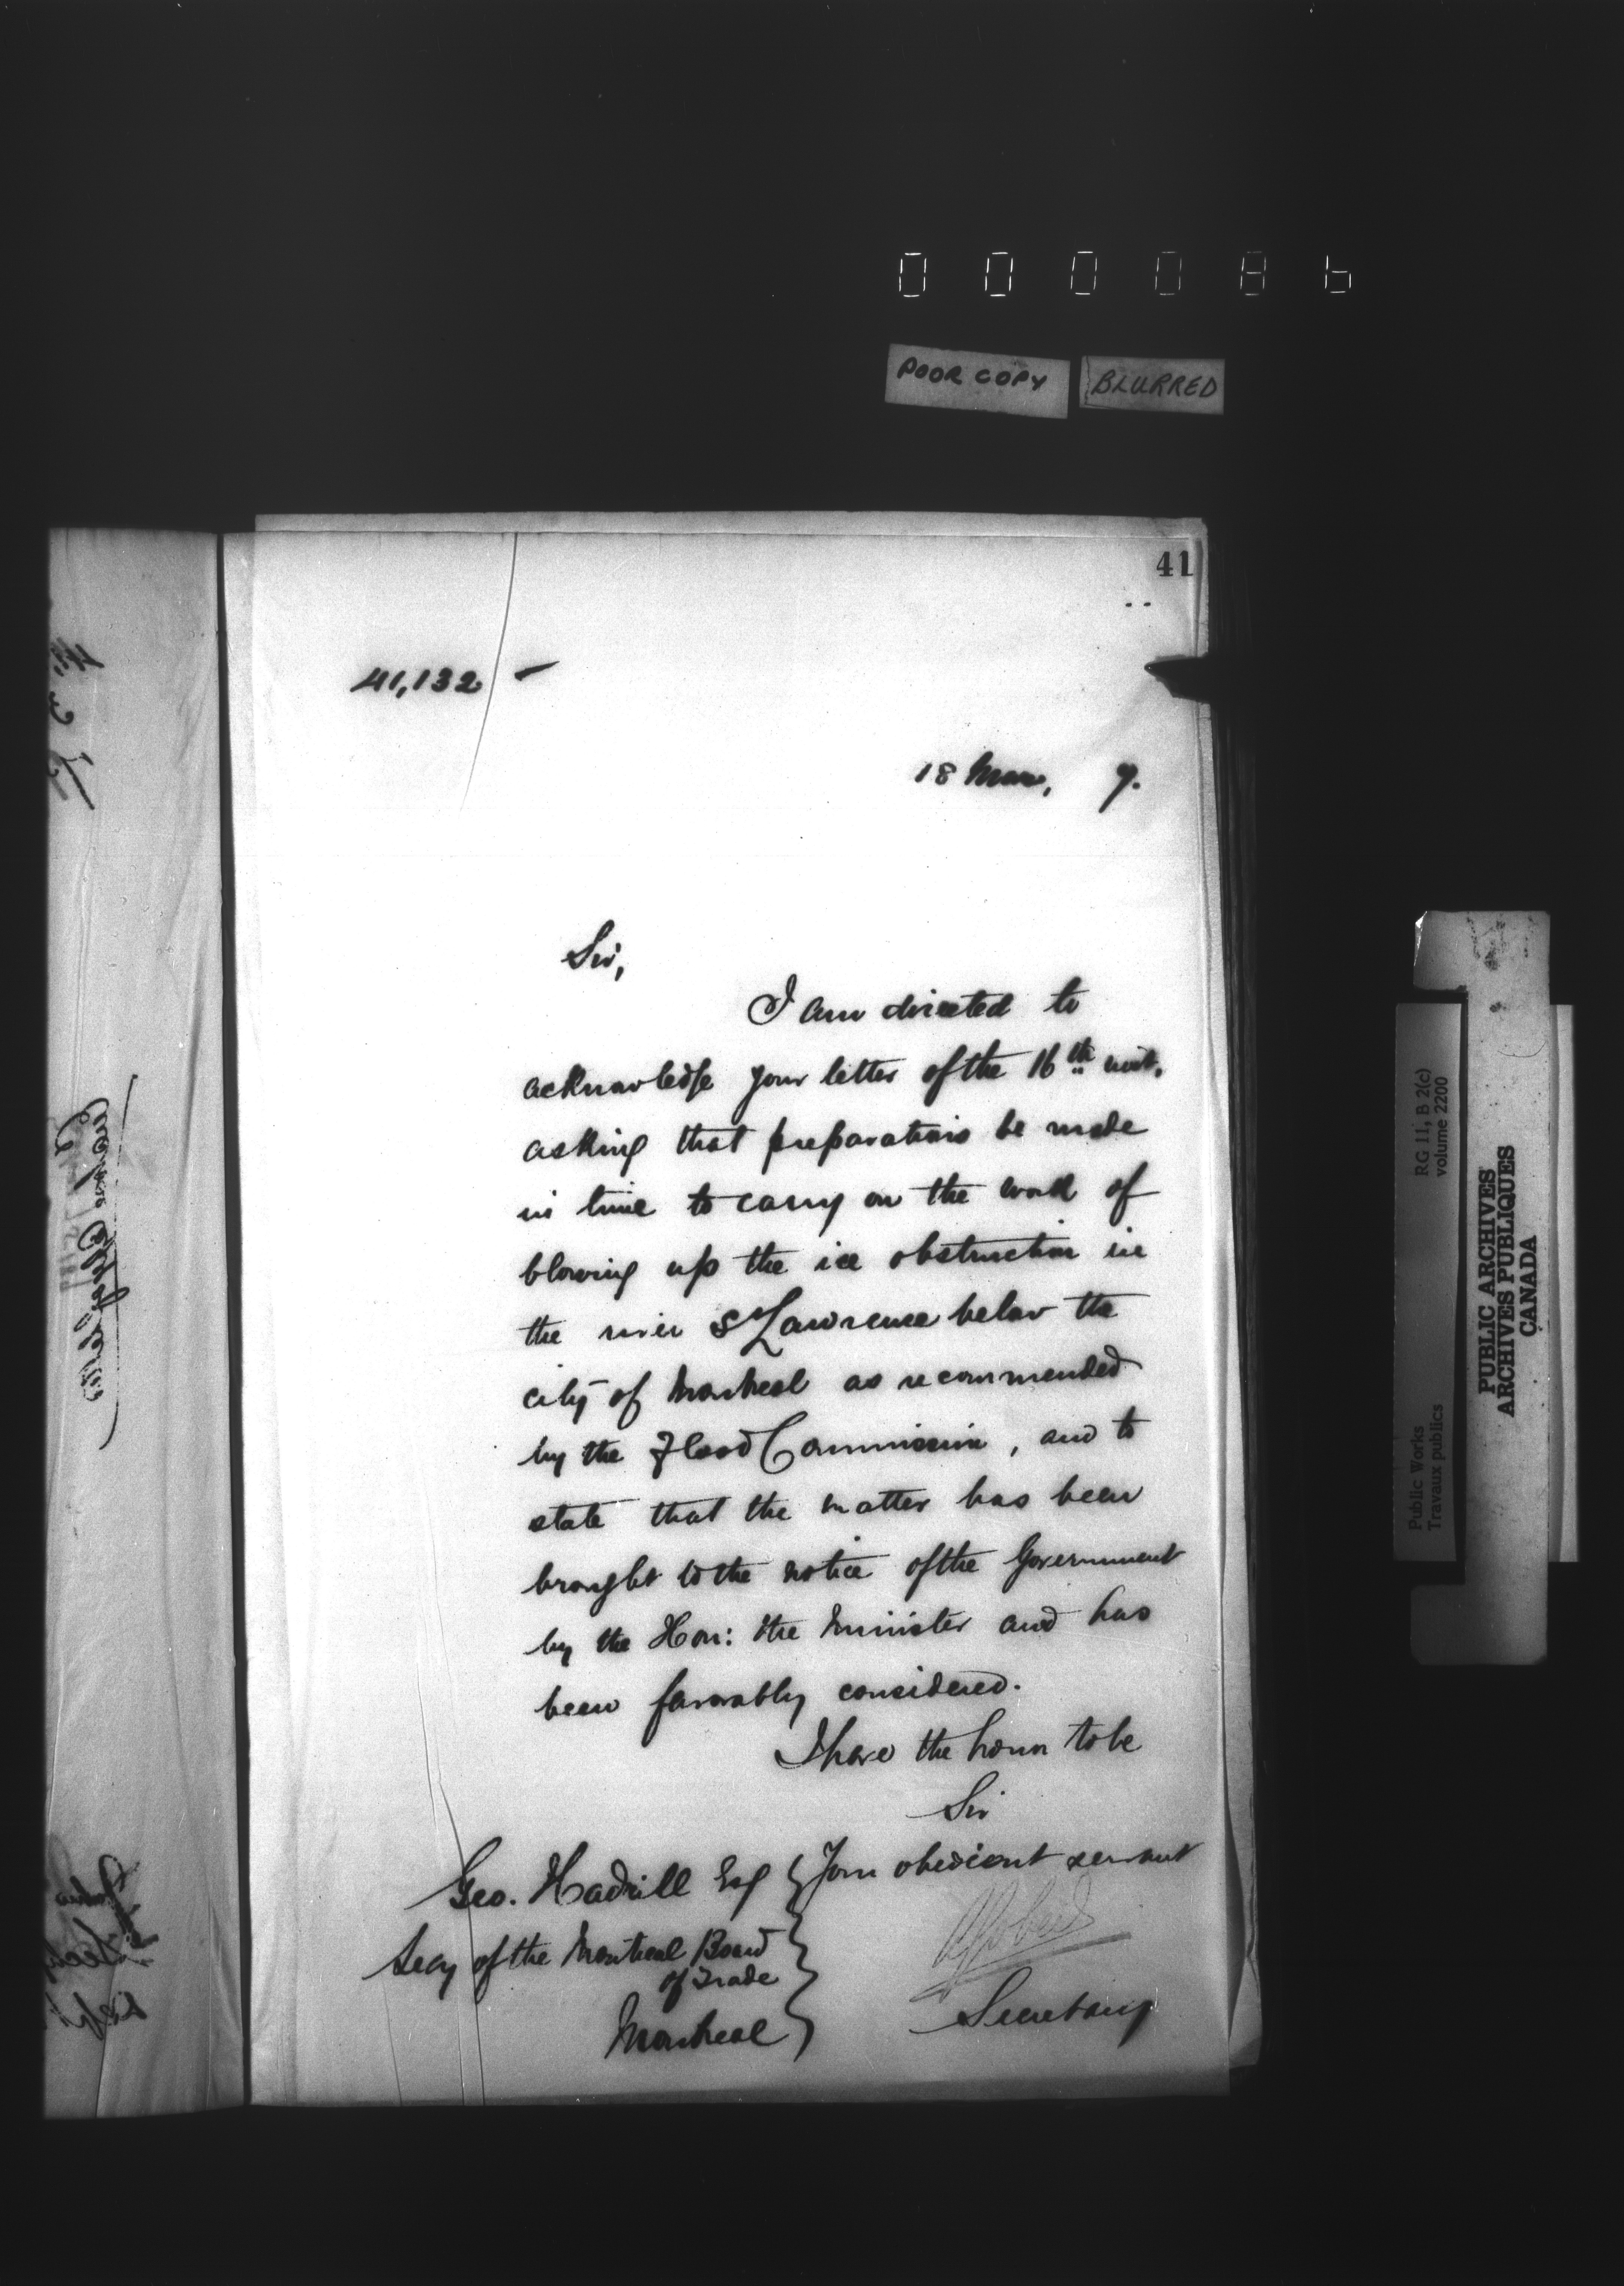 000086
POOR COPY BLURRED
41
41,132
18 Mar, 7.
Sir,
I am directed to
acknowledge your letter of the 16th inst.
asking that preparations be made
in time to carry on the work of
blowing up the ice obstruction in
the river St Lawrence below the
city of Montreal as recommended
by the Flood Commission, and to
state that the matter has been
brought to the notice of the Government
by the Hon: the Minister and has
been favorably considered.
I have the honor to be
Sir
Your obedient servant
Secretary
Geo. Hadrill Esq
Secy of the Montreal Board
of Trade
Montreal
RG 11, B 2(c)
volume 2200
Public Works
Travaux publics
PUBLIC ARCHIVES
ARCHIVES PUBLIQUES
CANADA